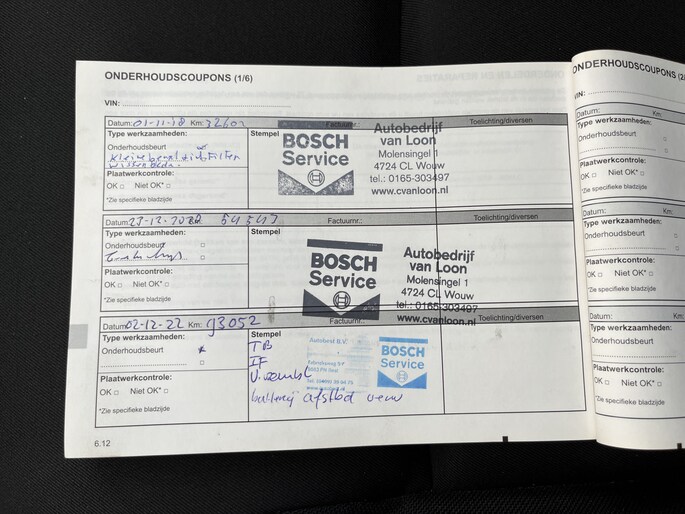 ONDERHOUDSCOUPONS (1/6)
VIN:
Datum: 01-11-18 Km: Factuurnr.: Toelichting/diversen
Type werkzaamheden: Stempel
Onderhoudsbeurt
Kleine beurt
Plaatwerkcontrole:
OK Niet OK*
*Zie specifieke bladzijde
BOSCH
Service
Autobedrijf
van Loon
Molensingel 1
4724 CL Wouw
tel.: 0165-303497
www.cvanloon.nl
Datum: 23-12-2020 54543 Factuurnr.: Toelichting/diversen
Type werkzaamheden: Stempel
Onderhoudsbeurt
Plaatwerkcontrole:
OK Niet OK*
*Zie specifieke bladzijde
BOSCH
Service
Autobedrijf
van Loon
Molensingel 1
4724 CL Wouw
tel.: 0165-303497
www.cvanloon.nl
Datum: 02-12-22 Km: 93052 Factuurnr.: Toelichting/diversen
Type werkzaamheden: Stempel
Onderhoudsbeurt
Plaatwerkcontrole:
OK Niet OK*
*Zie specifieke bladzijde
TB
IF
batterij
BOSCH
Service
6.12
ONDERHOUDSCOUPONS (2/
VIN:
Datum: Km:
Type werkzaamheden:
Onderhoudsbeurt
Plaatwerkcontrole:
OK Niet OK*
*Zie specifieke bladzijde
Datum:
Type werkzaamheden:
Onderhoudsbeurt
Plaatwerkcontrole:
OK Niet OK*
*Zie specifieke bladzijde
Datum: Km:
Type werkzaamheden:
Onderhoudsbeurt
Plaatwerkcontrole:
OK Niet OK*
*Zie specifieke bladzijde